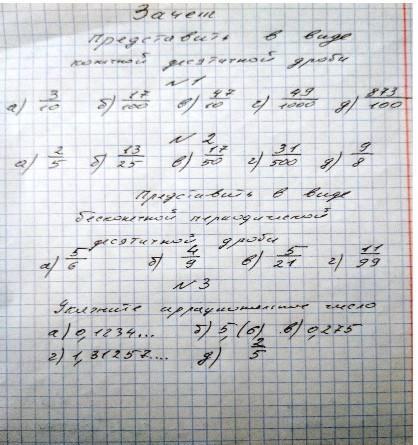 Зачет
Представить в виде
конечной десятичной дроби
№1
а) 3/10 б) 17/100 в) 47/10 г) 49/1000 д) 873/100
№2
а) 2/5 б) 13/25 в) 17/50 г) 31/500 д) 9/8
Представить в виде
бесконечной периодической
десятичной дроби
а) 5/6 б) 4/9 в) 5/21 г) 11/99
№3
Укажите иррациональное число
а) 0,1234... б) 5,(6) в) 0,275
г) 1,31257... д) 2/5